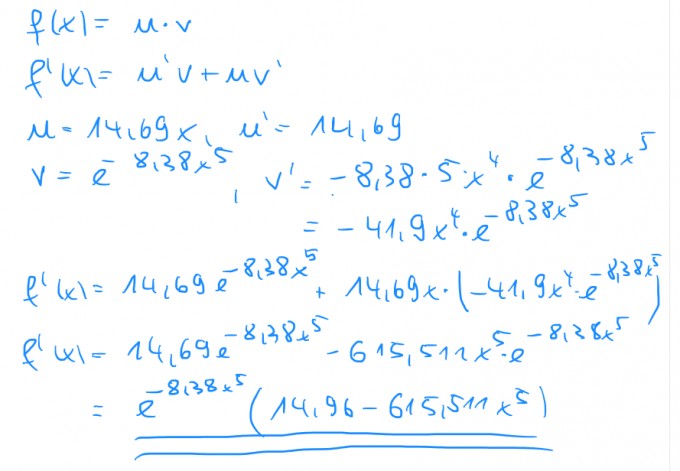 f(x) = u · v
f'(x) = u'v + uv'
u = 14,69x, u' = 14,69
v = e^{-8,38x^5}, v' = -8,38 · 5 · x^4 · e^{-8,38x^5}
= -41,9x^4 · e^{-8,38x^5}
f'(x) = 14,69e^{-8,38x^5} + 14,69x · (-41,9x^4 · e^{-8,38x^5})
f'(x) = 14,69e^{-8,38x^5} - 615,511x^5 · e^{-8,38x^5}
= e^{-8,38x^5} (14,96 - 615,511x^5)